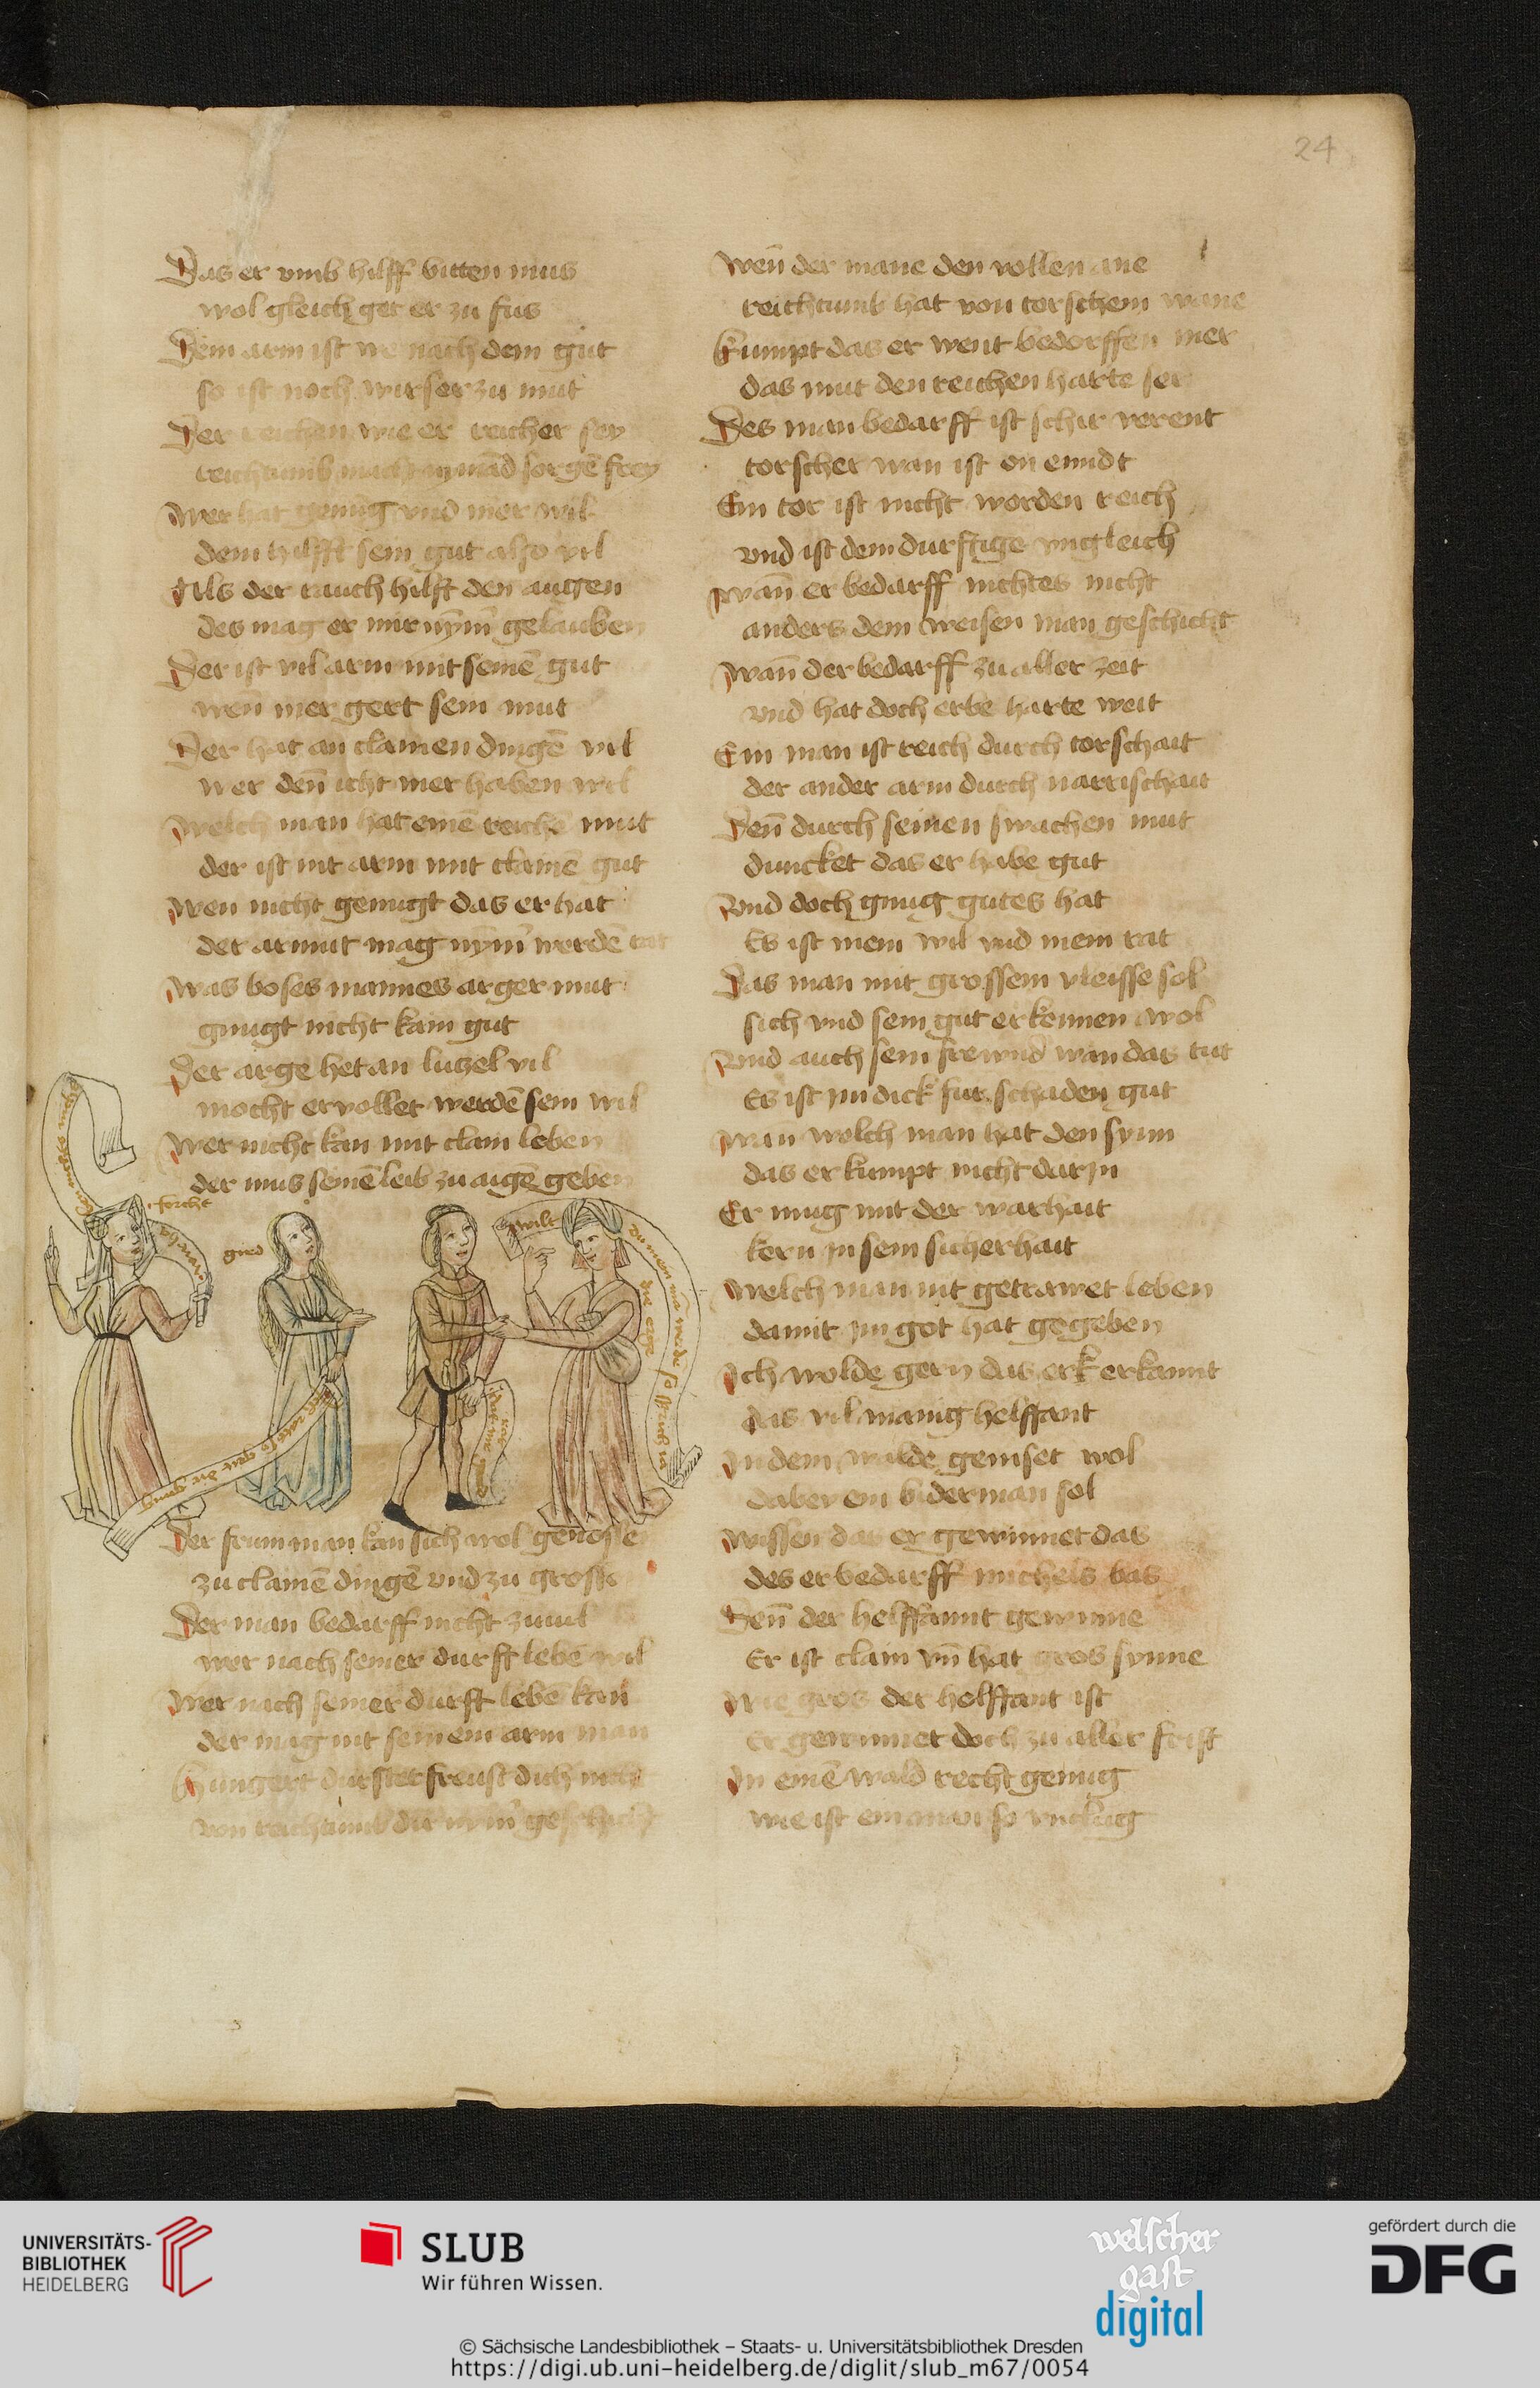 24
Das er vmb hilff bitten mus
wol gleich get er zu fus
Dem arm ist we nach dem gut
so ist noch wirser zu mut
Der reichen wie er reicher sey
reichtumb mach nymād sorgē frey
wer hat genug vnd mer wil
dem hilfft sein gut also vil
Als der rauch hilft den augen
des mag er mir nym̄ gelauben
Der ist vil arm mit seinē gut
wen̄ mer gert sein mut
Der hat an clainen dingē vil
wer den̄ icht mer haben wil
welch man hat einē reichē mut
der ist nit arm mit clainē gut
wen nicht genugt das er hat
der armut mag nym̄ werdē rat
was boses mannes arger mut
gnugt nicht kain gut
Der arge het an lutzel vil
mocht ervollet werdē sein wil
wer nicht kan mit clain leben
der mus seinē leib zu aigē geben
forcht
gird
wilt
du mein mā werdē so sprich ia
die erge
Der frum man kan sich wol genosse
zu clainē dingē vnd zu grosse
Der man bedarff nicht zuuil
wer nach seiner durfft lebē wil
wer nach seiner durfft lebē kan
der mag nit sein ein arm man
Hungert durstet freust dich nicht
von reichtumb dir nym̄ geschicht
wen̄ der mane den vollen ane
reichtumb hat von torschem wane
kumpt das er went bedorffen mer
das mut den reichen harte ser
Des man bedarff ist schir verent
torscher wan ist on enndt
Ein tor ist nicht worden reich
vnd ist dem durftige vngleich
wan̄ er bedarff nichtes nicht
anders dem weisen man geschicht
wan̄ der bedarff zu aller zeit
vnd hat doch erbe harte weit
Ein man ist reich durch torschait
der ander arm durch narrischait
Den̄ durch seinen swachen mut
duncket das er habe gut
Vnd doch gnug gutes hat
Es ist mein wil vnd mein rat
Das man mit grossem vleisse sol
sich vnd sein gut erkennen wol
Vnd auch sein frewnd wan das tut
Es ist jm dick fur schaden gut
wan wolch man hat den synn
das er kumpt nicht dar jn
Er mug mit der warhait
kern jn sein sicherhait
welch man nit getrawet leben
damit jm got hat gegeben
Ich wolde gern das er k erkannt
das vil manig helffant
In dem walde geniset wol
dabey ein biderman sol
wissen das er gewinnet das
des er bedarff michels bas
Den̄ der helffannt gewinne
Er ist clain vn̄ hat gros synne
wie gros der helffant ist
Er gewinnet doch zu aller frist
In einē wald recht genug
wie ist ein man so vnclug
UNIVERSITÄTS-
BIBLIOTHEK
HEIDELBERG
SLUB
Wir führen Wissen.
welscher
gast
digital
gefördert durch die
DFG
© Sächsische Landesbibliothek – Staats- u. Universitätsbibliothek Dresden
https://digi.ub.uni-heidelberg.de/diglit/slub_m67/0054